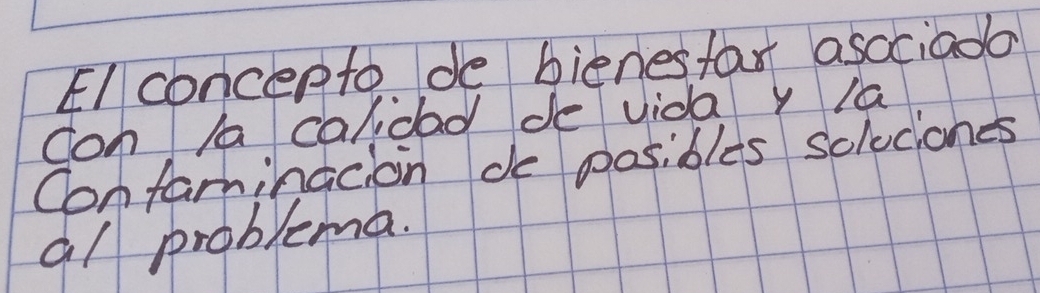 El concepto de bienestar asociado
con la calidad de vida y la
Contaminación de posibles soluciones
al problema.